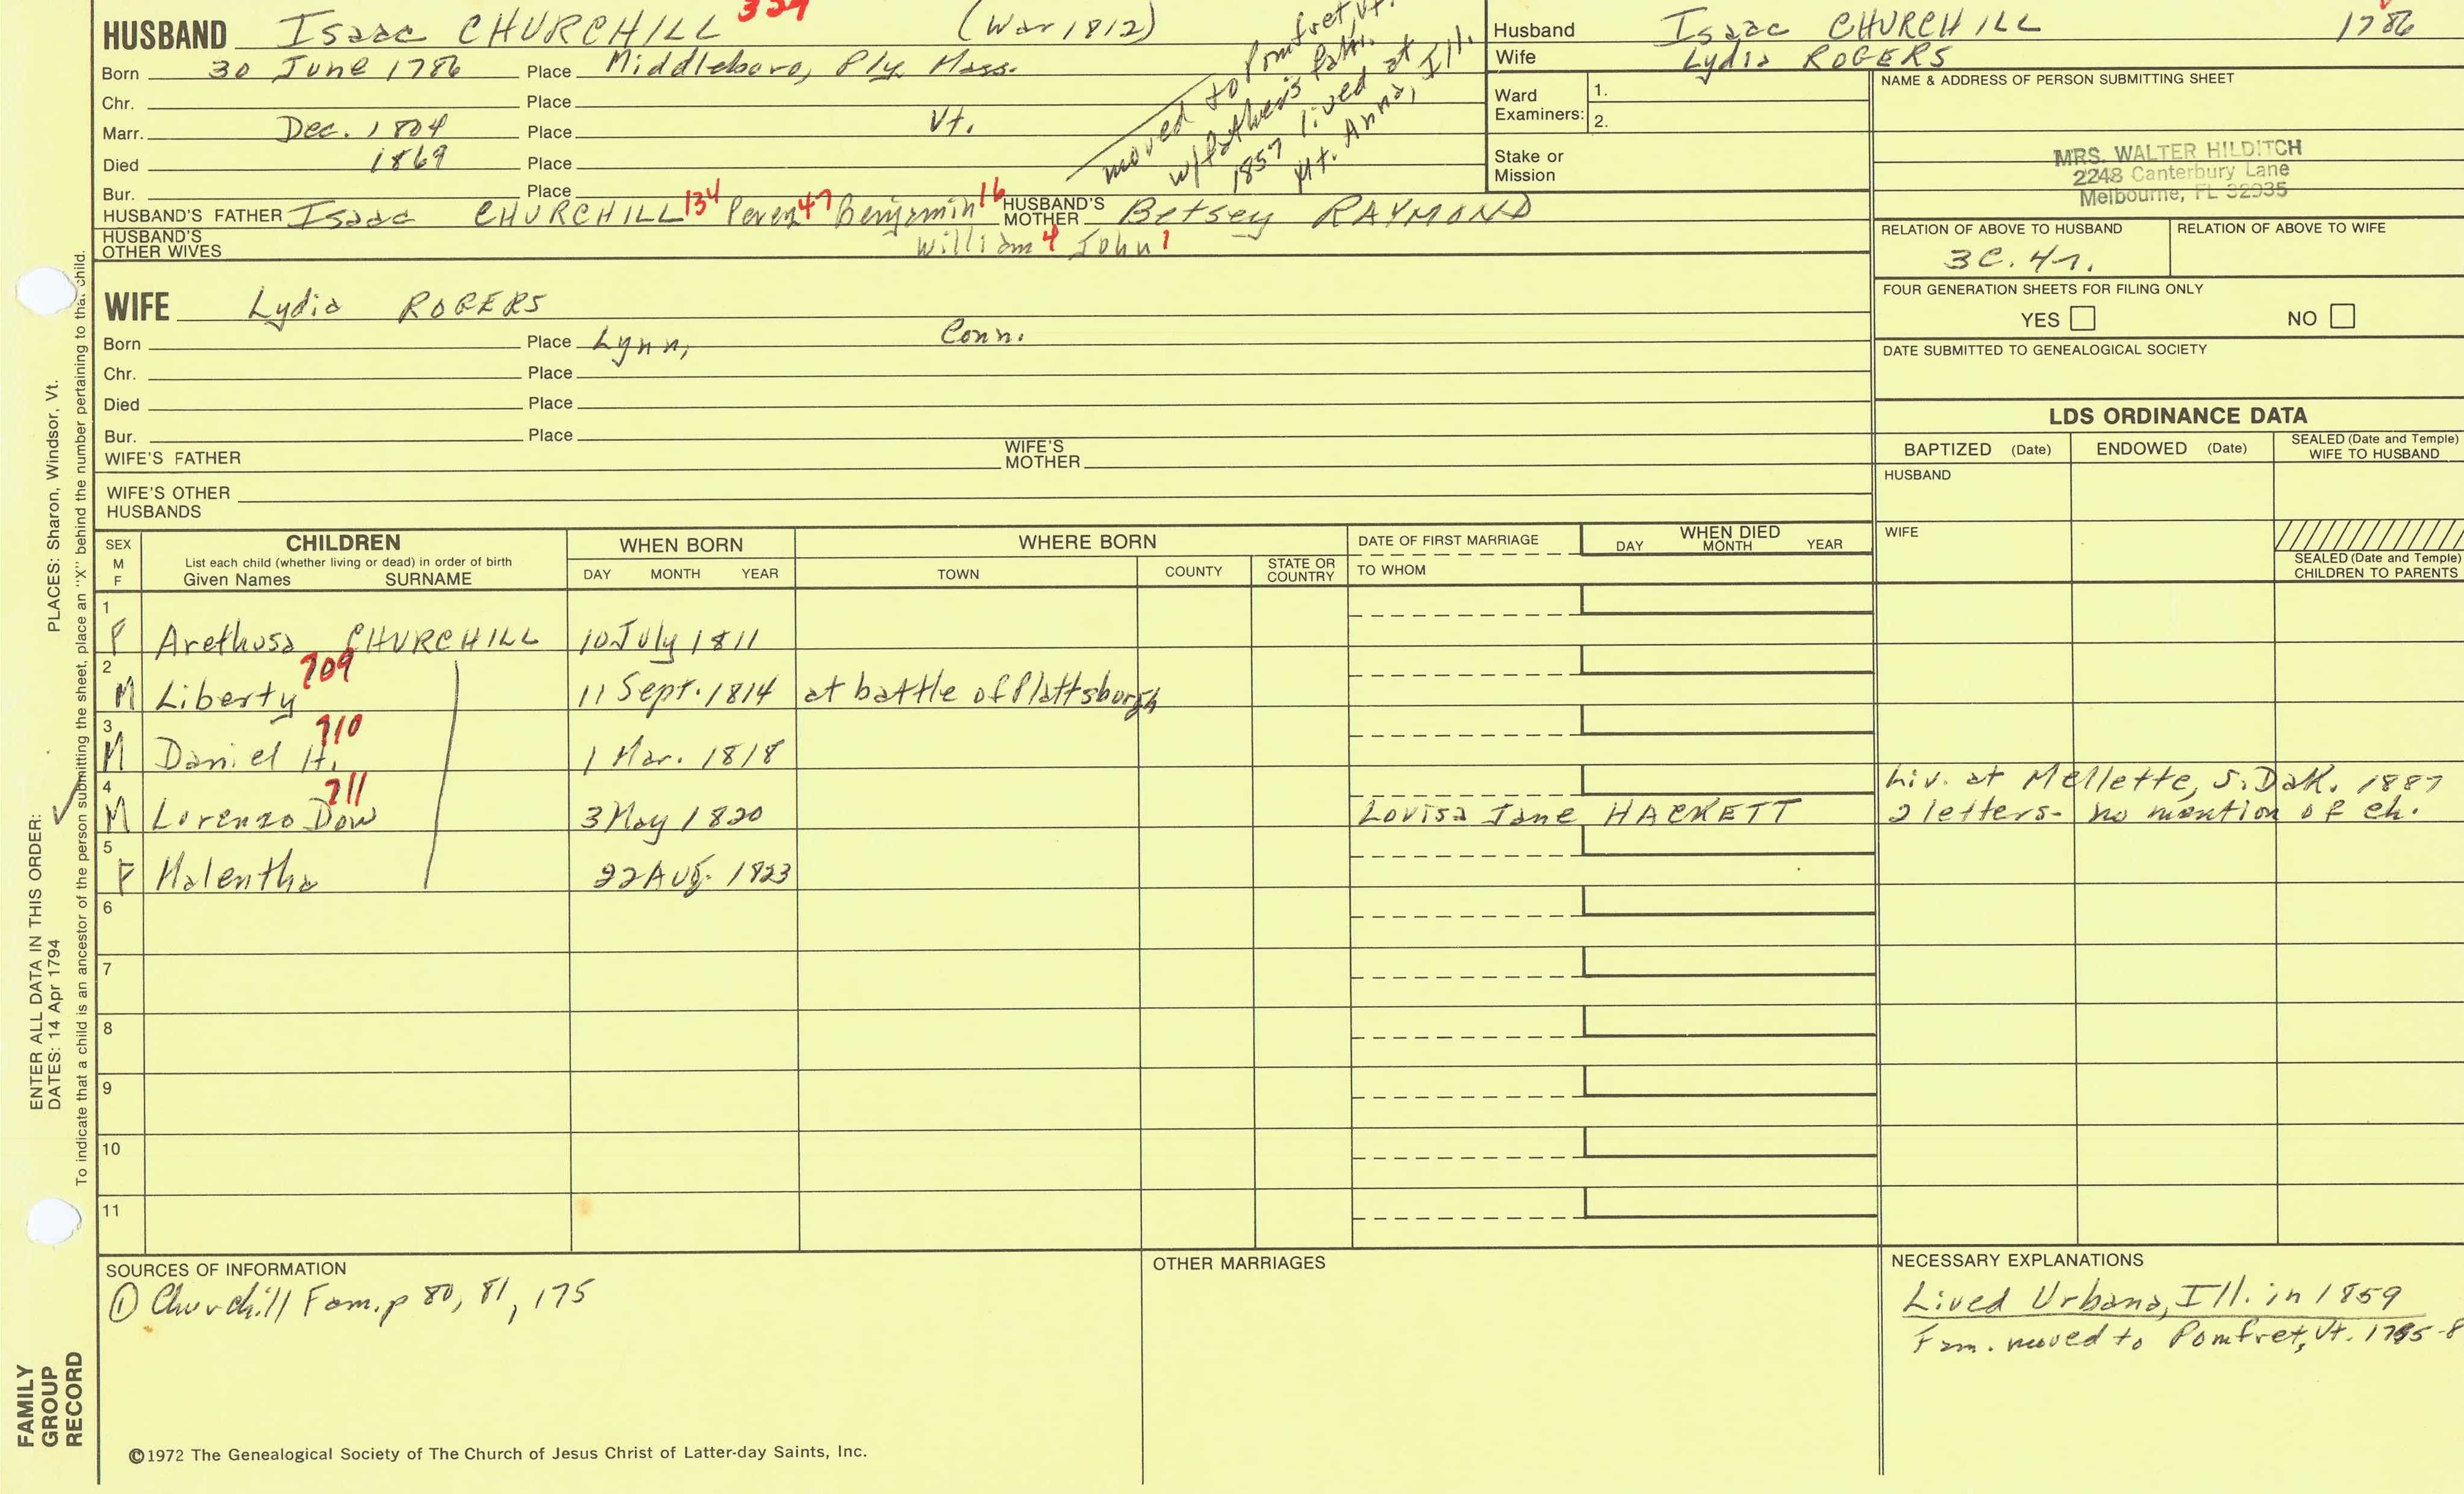 HUSBAND Isaac CHURCHILL (War 1812)
Born 30 June 1786 Place Middleboro, Ply. Mass.
Chr. Place
Marr. Dec. 1804 Place Vt.
Died 1869 Place
Bur. Place
moved to Pomfret, Vt.
w/father's fam.
1857 lived at
Mt. Anna, Ill.
HUSBAND'S FATHER Isaac CHURCHILL 134 Perez 47 Benjamin 16 HUSBAND'S MOTHER Betsey RAYMOND
HUSBAND'S OTHER WIVES William 4 John 1
Husband Isaac CHURCHILL 1786
Wife Lydia ROGERS
Ward Examiners: 1.
2.
Stake or Mission
NAME & ADDRESS OF PERSON SUBMITTING SHEET
MRS. WALTER HILDITCH
2248 Canterbury Lane
Melbourne, FL 32935
RELATION OF ABOVE TO HUSBAND RELATION OF ABOVE TO WIFE
3C. 4r.
FOUR GENERATION SHEETS FOR FILING ONLY
YES NO
DATE SUBMITTED TO GENEALOGICAL SOCIETY
WIFE Lydia ROGERS
Born Place Lynn, Conn.
Chr. Place
Died Place
Bur. Place
WIFE'S FATHER WIFE'S MOTHER
WIFE'S OTHER HUSBANDS
LDS ORDINANCE DATA
BAPTIZED (Date) ENDOWED (Date) SEALED (Date and Temple) WIFE TO HUSBAND
HUSBAND
WIFE
SEALED (Date and Temple) CHILDREN TO PARENTS
SEX M F
CHILDREN
List each child (whether living or dead) in order of birth
Given Names SURNAME
WHEN BORN
DAY MONTH YEAR
WHERE BORN
TOWN COUNTY STATE OR COUNTRY
DATE OF FIRST MARRIAGE
TO WHOM
WHEN DIED
DAY MONTH YEAR
1 F Arethusa CHURCHILL 10 July 1811
2 M Liberty 709 11 Sept. 1814 at battle of Plattsburgh
3 M Daniel H. 710 1 Mar. 1818
4 M Lorenzo Dow 711 3 May 1820 Lovisa Jane HACKETT
Liv. at Mellette, S. Dak. 1887
2 letters- no mention of ch.
5 F Malentha 22 Aug. 1823
6
7
8
9
10
11
SOURCES OF INFORMATION
① Churchill Fam. p 80, 81, 175
OTHER MARRIAGES
NECESSARY EXPLANATIONS
Lived Urbana, Ill. in 1859
Fam. moved to Pomfret, Vt.
©1972 The Genealogical Society of The Church of Jesus Christ of Latter-day Saints, Inc.
FAMILY GROUP RECORD
ENTER ALL DATA IN THIS ORDER:
DATES: 14 Apr 1794 PLACES: Sharon, Windsor, Vt.
To indicate that a child is an ancestor of the person submitting the sheet, place an "X" behind the number pertaining to that child.